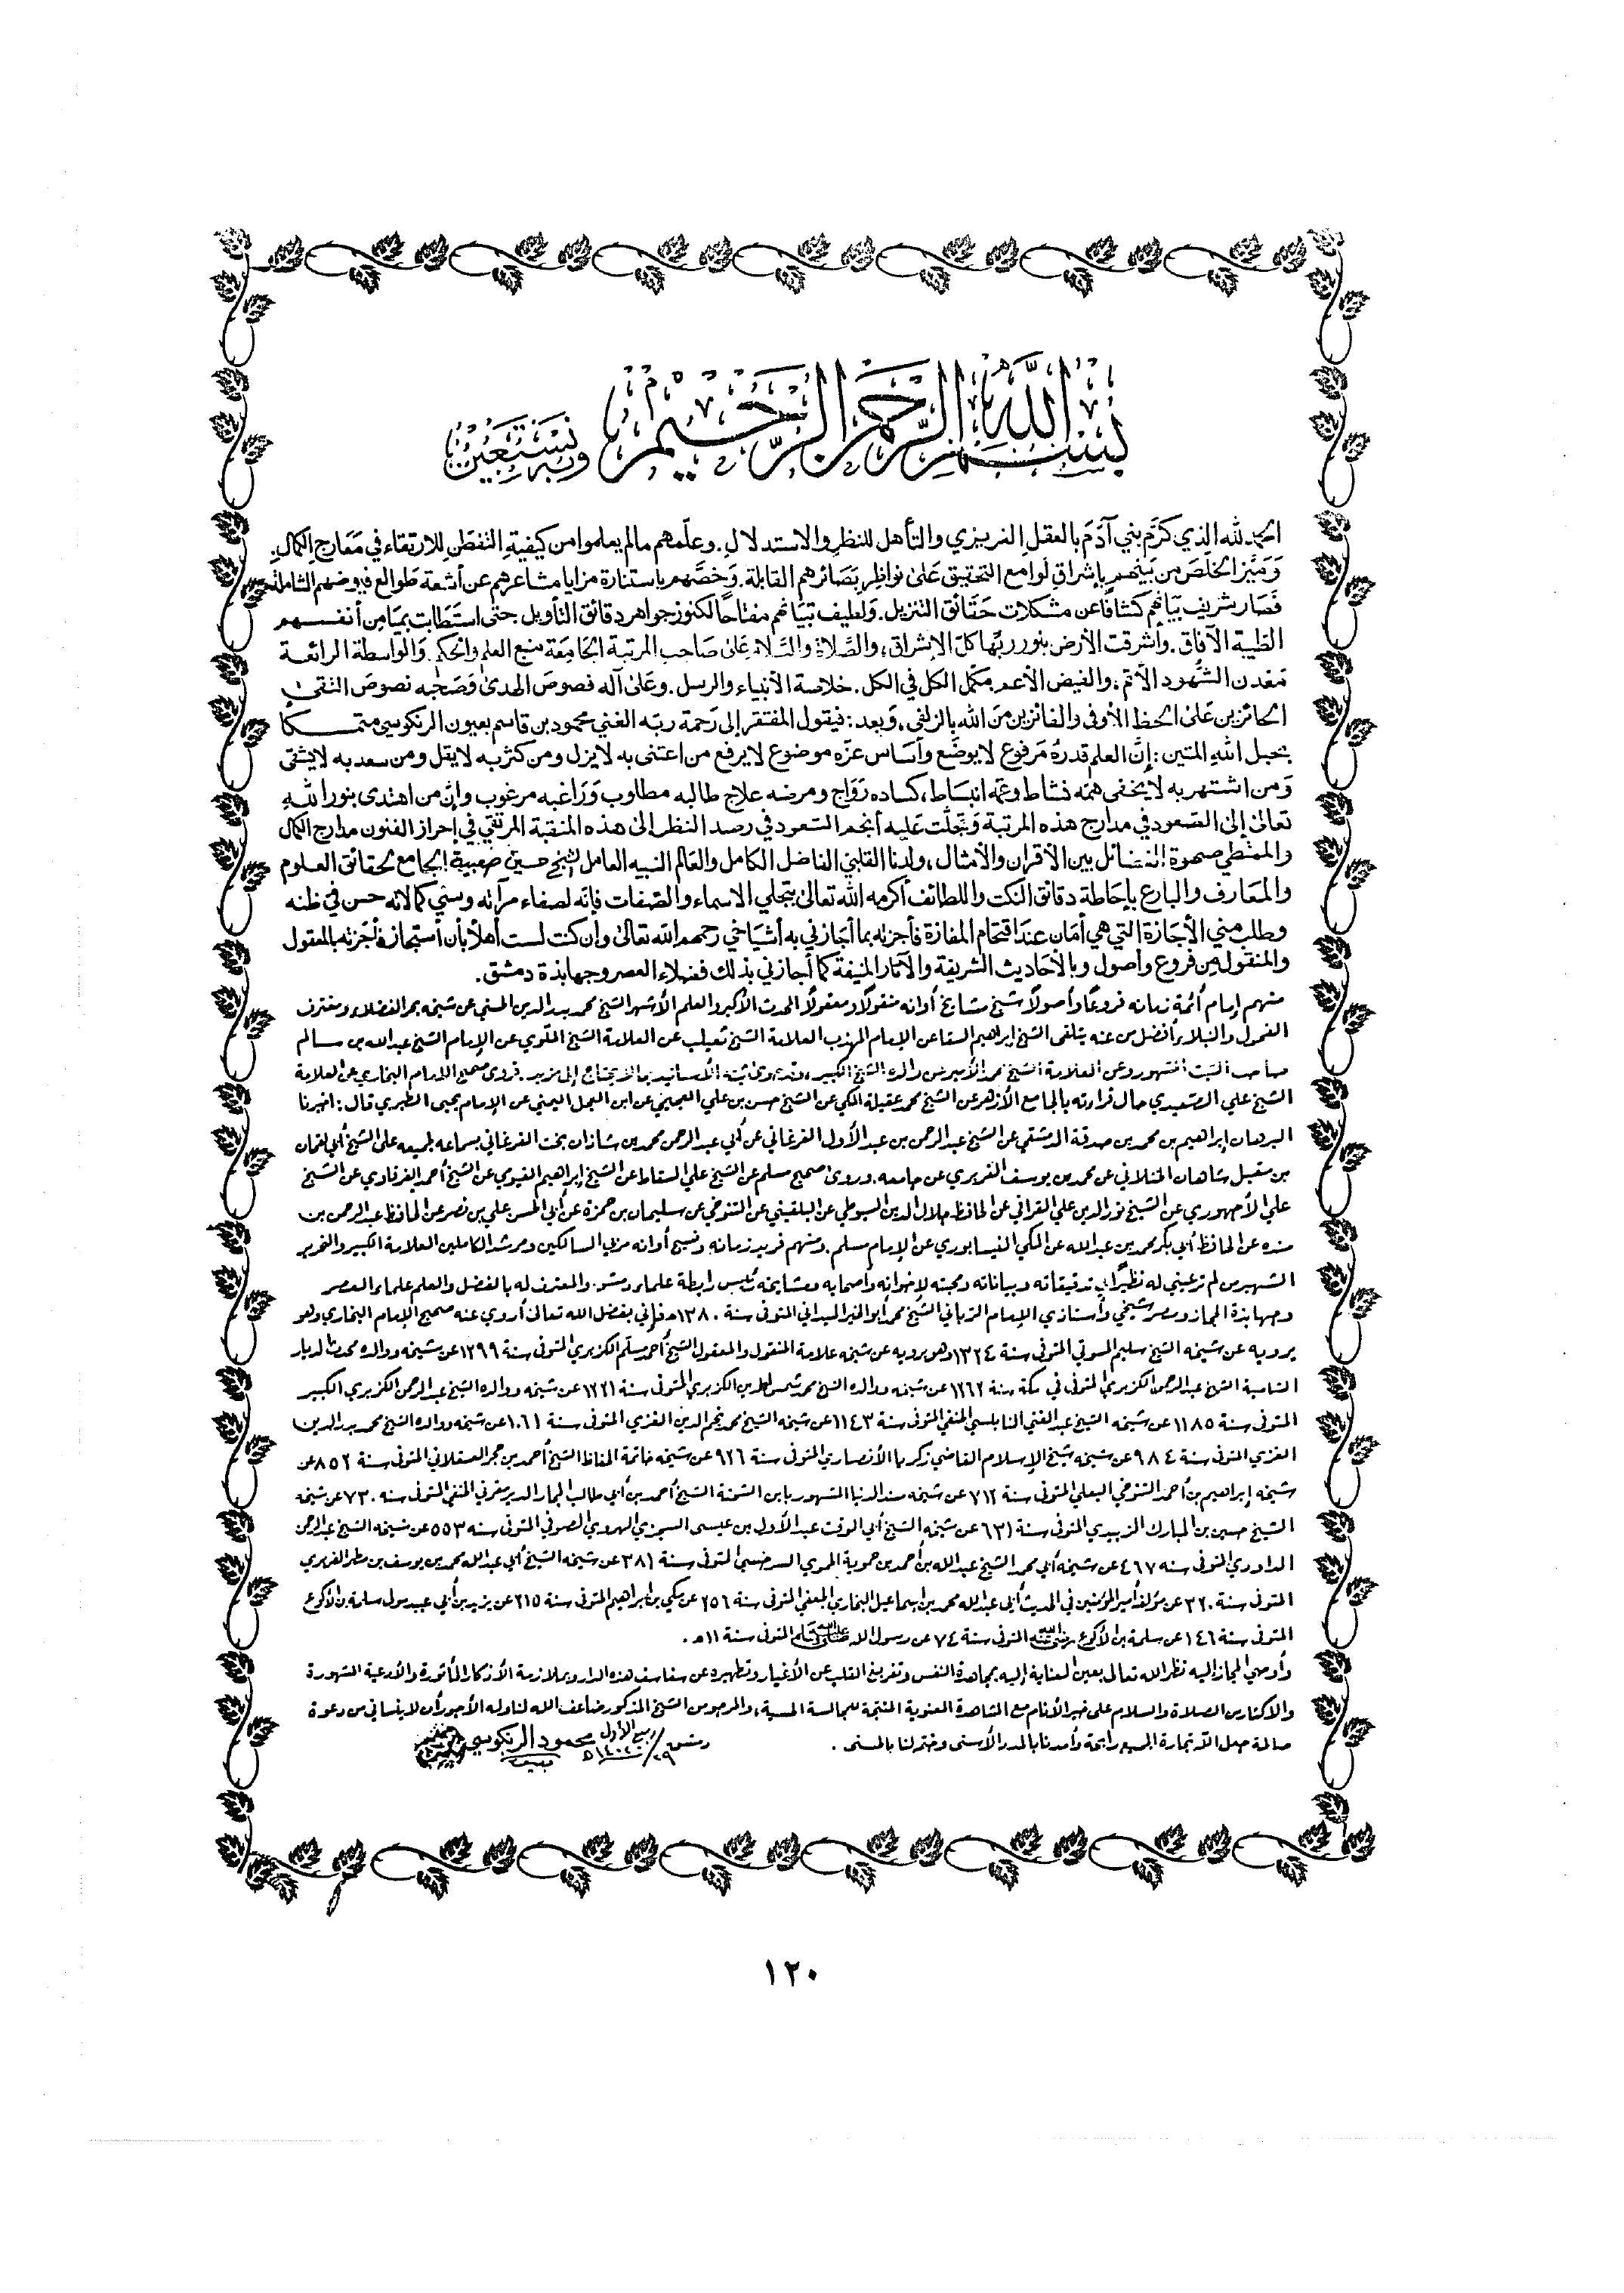 بسم الله الرحمن الرحيم وبه نستعين
الحمد لله الذي كرَّم بني آدَمَ بالعقل الغريزي والتأهل للنظر والاستدلال. وعلّمهم مالم يعلموا من كيفية التفطن للارتقاء في مَعَارج الكمال.
وَمَيَّز الخلّص من بَينهم بإشراق لَوامع التحقيق عَلى نواظر بَصَائرهم القابلة. وَخصَّهم باستنارة مزايا مشاعرهم عن أشعة طوالع فيوضهم الشاملة
فصَار شريف بيَانهم كشافًا عن مشكلات حَقَائق التنزيل. وَلطيف تبيَانهم مفتاحًا لكنوز جواهر دقائق التأويل. حتى استَطابت بميَامن أنفسهم
الطيبة الآفاق. وأشرقت الأرض بنور ربّها كلّ الإشراق، والصَّلاة والسَّلام عَلى صَاحب المرتبة الجَامعَة منبع العلم والحكم. وَالواسطة الرائعة
مَعْدن الشُهود الأتم، والفيض الأعم. مكمّل الكل في الكل. خلاصة الأنبياء والرسل. وعَلى آله فصوصَ الهدى وَصَحبه نصوصَ التقى
الحائزين عَلى الحظ الأوفى والفائزين منَ الله بالزلفى، وَبعد: فيقول المفتقر إلى رَحمة ربّه الغني محمود بن قاسم بعيون الرنكوسي متمسكًا
بحبل الله المتين: إنَّ العلم قدرهُ مَرفوع لا يوضَع وأسَاس عزّه موضوع لا يرفع من اعتنى به لا يزل ومن كثر به لا يقل ومن سعد به لا يشقى
وَمن اشتهر به لا يخفى همّه نشاط وغمّه انبسَاط، كساده رَوَاج ومرضه علاج طالبه مطلوب وَرَاغبه مرغوب وإنّ من اهتدى بنور الله
تعالى إلى الصّعود في مدارج هذه المرتبة وَتجلّت عَليه أنجم السّعود في رصد النظر الى هذه المنقبة المرتقي في إحراز الفنون مدارج الكمال
والممتطي صهوة الفضائل بين الأقران والأمثال، ولدنا القلبيّ الفاضل الكامل والعَالم النبيه العامل الشيخ حسين صعبية الجامع لحقائق العلوم
والمعَارف والبارع بإحَاطة دقائق النكت واللطائف أكرمه الله تعالى بتجلي الاسماء والصّفات فإنّه لصفاء مرآته وسَني كمالاته حسن فيّ ظنه
وطلب مني الأجَازة التي هي أمَان عندَ اقتحام المفازة فأجزته بما أجَازني به أشيَاخي رحمهم الله تعالى وإن كنت لست أهلاً بأن أستجاز فأجَزته بالمعقول
والمنقول من فروع وأصول وبالأحَاديث الشريفة والآثار المنيفة كما أجَازني بذلك فضلاء العصر وجهابذة دمشق.
منهم إمام أئمة زمانه فروعًا وأصولاً شيخ مشايخ أوانه منقولاً ومعقولاً المحدث الأكبر والعلم الأشهر الشيخ محمد بدر الدين الحسني عن شيخه بحر الفضلاء ومغترف
الفحول والنبلاء أفضل من عنه يتلقى الشيخ إبراهيم السقا عن الإمام المهذب العلامة الشيخ ثعيلب عن العلامة الشيخ الملّوي عن الإمام الشيخ عبدالله بن سالم
صاحب الثبت المشهور وعن العلامة الشيخ محمد الأمير عن والده الشيخ الكبير، وقد حوى ثبته الأسانيد بما لا يحتاج إلى مزيد. فروى صحيح الإمام البخاري عن العلامة
الشيخ علي الصعيدي حال قراءته بالجامع الأزهر عن الشيخ محمد عقيلة المكي عن الشيخ حسن بن علي العجيمي عن ابن العجل اليمني عن الإمام يحيى الطبري قال: اخبرنا
البرهان إبراهيم بن محمد بن صدقة الدمشقي عن الشيخ عبدالرحمن بن عبدالأول الفرغاني عن أبي عبدالرحمن محمد بن شاذان بخت الفرغاني بسماعه لجميعه على الشيخ أبي لقمان
بن مقبل شاهان الختلاني عن محمد بن يوسف الفربري عن جامعه. وروى صحيح مسلم عن الشيخ علي السقاط عن الشيخ إبراهيم الفيومي عن الشيخ أحمد الغرقاوي عن الشيخ
علي الأجهوري عن الشيخ نور الدين علي القرافي عن الحافظ جلال الدين السيوطي عن البلقيني عن التنوخي عن سليمان بن حمزة عن أبي الحسن علي بن نصر عن الحافظ عبدالرحمن بن
منده عن الحافظ أبي بكر محمد بن عبدالله عن المكي النيسابوري عن الإمام مسلم. ومنهم فريد زمانه ونسيج أوانه مربي السالكين ومرشد الكاملين العلامة الكبير والنحرير
الشهير من لم تر عيني له نظيرًا في تدقيقاته وبياناته ومحبته لإخوانه وأصحابه ومشايخه رئيس رابطة علماء دمشق. والمعترف له بالفضل والعلم علماء العصر
وجهابذة الحجاز ومصر شيخي وأستاذي الإمام الرباني الشيخ محمد أبو الخير الميداني المتوفى سنة ١٣٨٠هـ فإني بفضل الله تعالى أروي عنه صحيح الإمام البخاري وهو
يرويه عن شيخه الشيخ سليم المسوتي المتوفى سنة ١٣٢٤ وهو يرويه عن شيخه علامة المنقول والمعقول الشيخ أحمد مسلّم الكزبري المتوفى سنة ١٢٩٩ عن شيخه ووالده محدث الديار
الشامية الشيخ عبدالرحمن الكزبري المتوفى في مكة سنة ١٢٦٢ عن شيخه ووالده الشيخ محمد شمس الدين الكزبري المتوفى سنة ١٢٢١ عن شيخه ووالده الشيخ عبدالرحمن الكزبري الكبير
المتوفى سنة ١١٨٥ عن شيخه الشيخ عبدالغني النابلسي الحنفي المتوفى سنة ١١٤٣ عن شيخه الشيخ محمد نجم الدين الغزي المتوفى سنة ١٠٦١ عن شيخه ووالده الشيخ محمد بدر الدين
الغزي المتوفى سنة ٩٨٤ عن شيخه شيخ الإسلام القاضي زكريا الأنصاري المتوفى سنة ٩٢٦ عن شيخه خاتمة الحفاظ الشيخ أحمد بن حجر العسقلاني المتوفى سنة ٨٥٢ عن
شيخه إبراهيم بن أحمد التنوخي البعلي المتوفى سنة ٧١٢ عن شيخه مسند الدنيا المشهور بابن الشحنة الشيخ أحمد بن أبي طالب الحجار الديرمقرني الحنفي المتوفى سنه ٧٣٠ عن شيخه
الشيخ حسين بن المبارك الزبيدي المتوفى سنة ٦٣١ عن شيخه الشيخ أبي الوقت عبد الأول بن عيسى السجزي الهروي الصوفي المتوفى سنه ٥٥٣ عن شيخه الشيخ عبدالرحمن
الداودي المتوفى سنه ٤٦٧ عن شيخه أبي محمد الشيخ عبدالله بن أحمد بن حموية الحموي السرخسي المتوفى سنة ٣٨١ عن شيخه الشيخ أبي عبدالله محمد بن يوسف بن مطر الفربري
المتوفى سنة ٣٢٠ عن مؤلفه أمير المؤمنين في الحديث أبي عبدالله محمد بن إسماعيل البخاري الجعفي المتوفى سنة ٢٥٦ عن مكي بن إبراهيم المتوفى سنة ٢١٥ عن يزيد بن أبي عبيد مولى سلمة بن الأكوع
المتوفى سنة ١٤٦ عن سلمة بن الأكوع رضي الله عنه المتوفى سنة ٧٤ عن رسول الله صلى الله عليه وسلم المتوفى سنة ١١هـ.
وأوصي المجاز إليه نظر الله تعالى بعين العناية إليه بمجاهدة النفس وتفريغ القلب عن الأغيار وتطهيره عن سفاسف هذه الدار وبملازمة الأذكار المأثورة والأدعية المشهورة
والاكثار من الصلاة والسلام على خير الأنام مع المشاهدة المعنوية المنتجة للمجالسة الحسية، والمرجو من الشيخ المذكور ضاعف الله لنا وله الأجور أن لا ينساني من دعوة
صالحة جعل الله تجارة الجميع رابحة وأمدنا بالمدد الأسنى وختم لنا بالحسنى.
دمشق ٢٩/ ربيع الأول ١٤٠٢هـ محمود الرنكوسي
١٢٠